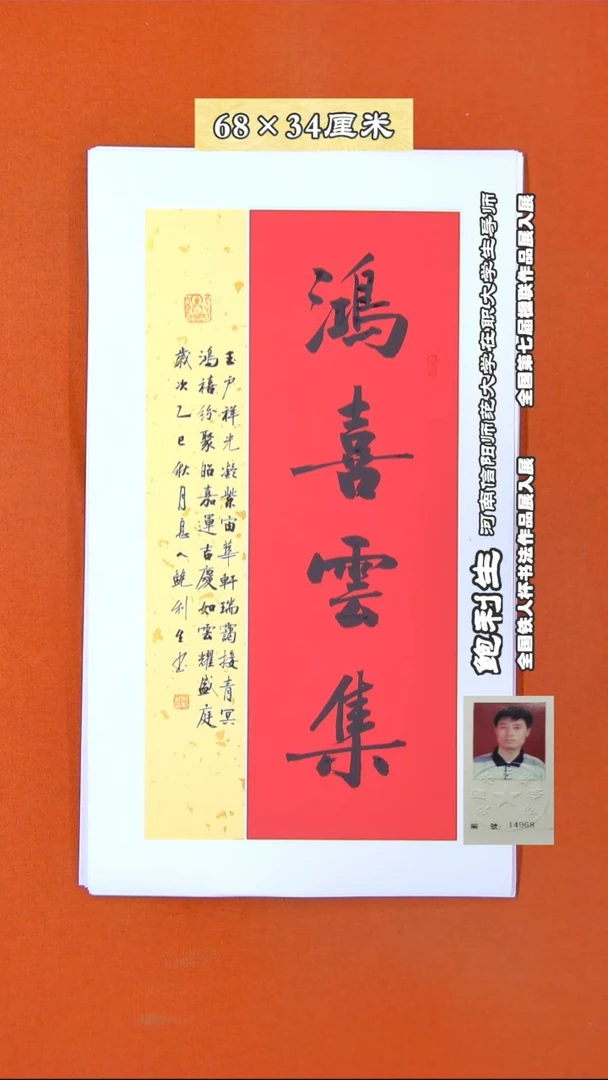 68×34厘米
鴻喜雲集
玉户祥光凝紫宙華軒瑞靄接青冥
鴻禧纷聚昭嘉運吉慶如雲耀盛庭
歲次乙巳秋月息人鲍利生书
鲍利生 河南信阳师院大学在职大学生导师
全国铁人杯书法作品展入展
全国第七届楹联作品展入展
編號:14968